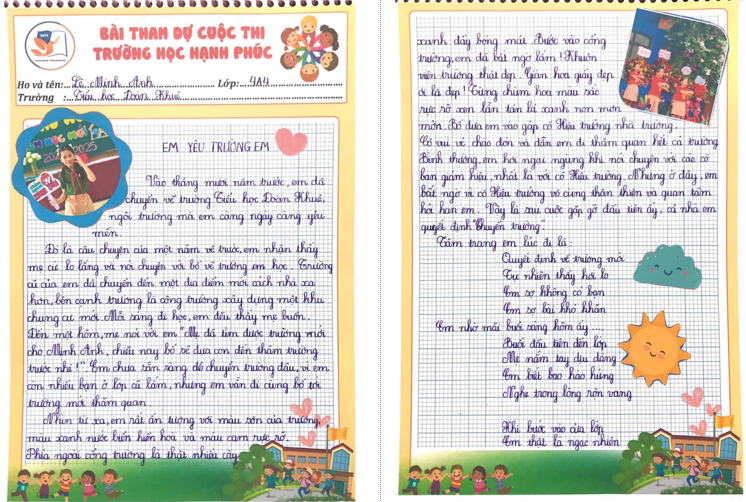 BÀI THAM DỰ CUỘC THI
TRƯỜNG HỌC HẠNH PHÚC
Họ và tên: Lê Minh Anh Lớp: 4A4
Trường : Tiểu học Đoàn Khuê
EM YÊU TRƯỜNG EM
Vào tháng mười năm trước, em đã
chuyển về trường Tiểu học Đoàn Khuê,
ngôi trường mà em càng ngày càng yêu
mến.
Đó là câu chuyện của một năm về trước, em nhận thấy
mẹ cứ lo lắng và nói chuyện với bố về trường em học. Trường
cũ của em đã chuyển đến một địa điểm mới cách nhà xa
hơn, bên cạnh trường là công trường xây dựng một khu
chung cư mới. Mỗi sáng đi học, em đều thấy mẹ buồn.
Đến một hôm, mẹ nói với em "Mẹ đã tìm được trường mới
cho Minh Anh, chiều nay bố sẽ đưa con đến thăm trường
trước nhé!" Em chưa sẵn sàng để chuyển trường đâu, vì em
còn nhiều bạn ở lớp cũ lắm, nhưng em vẫn đi cùng bố tới
trường mới thăm quan.
Nhìn từ xa, em rất ấn tượng với màu sơn của trường,
màu xanh nước biển hiền hoà và màu cam rực rỡ.
Phía ngoài cổng trường là thật nhiều cây
xanh đầy bóng mát. Bước vào cổng
trường, em đã bất ngờ lắm! Khuôn
viên trường thật đẹp. Giàn hoa giấy đẹp
ơi là đẹp! Từng chùm hoa màu sắc
rực rỡ xen lẫn tán lá xanh non mơn
mởn. Bố đưa em vào gặp cô Hiệu trưởng nhà trường.
Cô vui vẻ chào đón và dẫn em đi thăm quan hết cả trường.
Bình thường, em hơi ngại ngùng khi nói chuyện với các cô
ban giám hiệu, nhất là với cô Hiệu trưởng. Nhưng ở đây, em
bất ngờ vì cô Hiệu trưởng vô cùng thân thiện và quan tâm
hỏi han em. Vậy là sau cuộc gặp gỡ đầu tiên ấy, cả nhà em
quyết định Chuyển trường.
Tâm trạng em lúc đó là :
Quyết định về trường mới
Tự nhiên thấy hơi lo
Em sợ không có bạn
Em sợ bài khó khăn
Em nhớ mãi buổi sáng hôm ấy ....
Buổi đầu tiên đến lớp
Mẹ nắm tay dịu dàng
Em biết bao háo hứng
Nghe trong lòng rộn vang
Khi bước vào cửa lớp
Em thật là ngạc nhiên